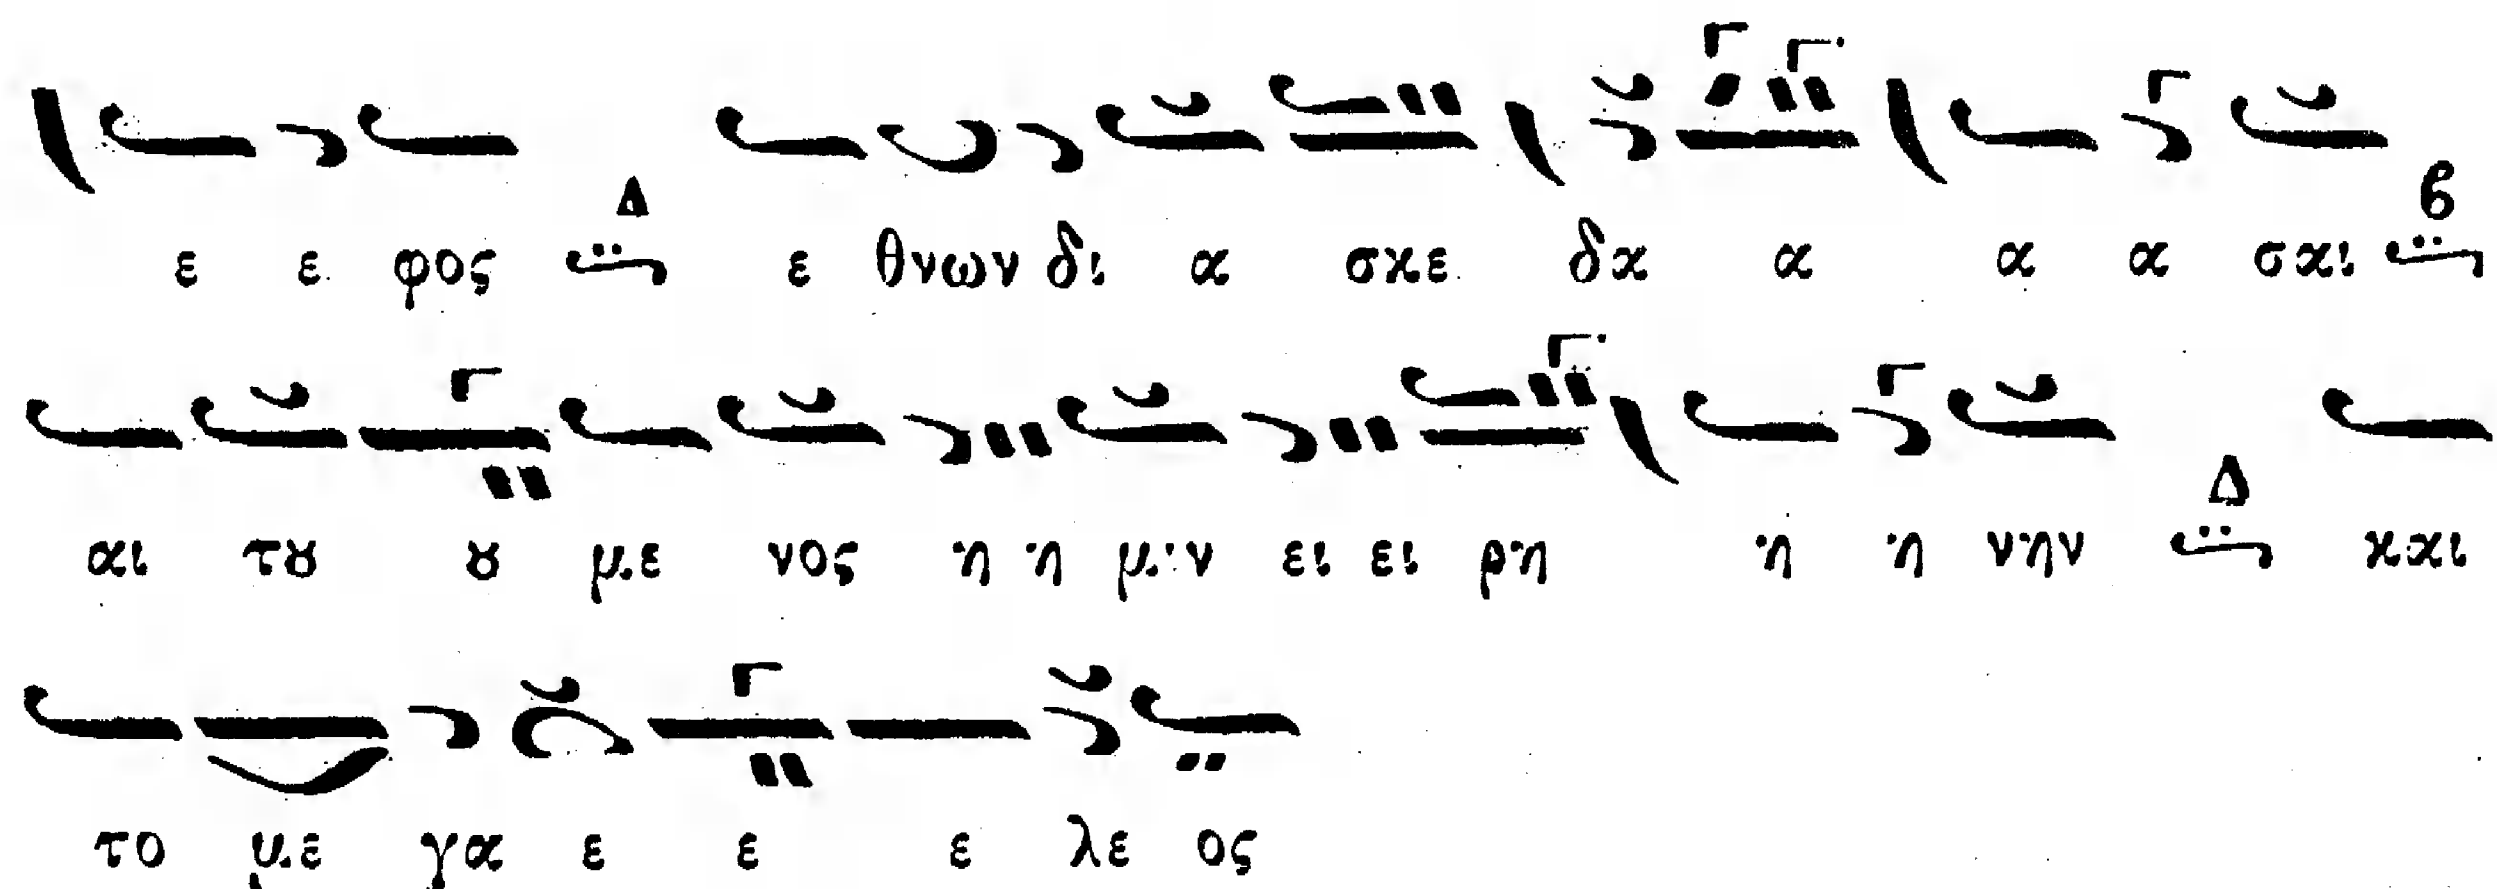 ε ε φος Δ ε θνων δι α σκε δα α α α σαι β
αι τȣ ȣ με νος η η μιν ει ει ρη η η νην Δ και
το με γα ε ε ε λε ος